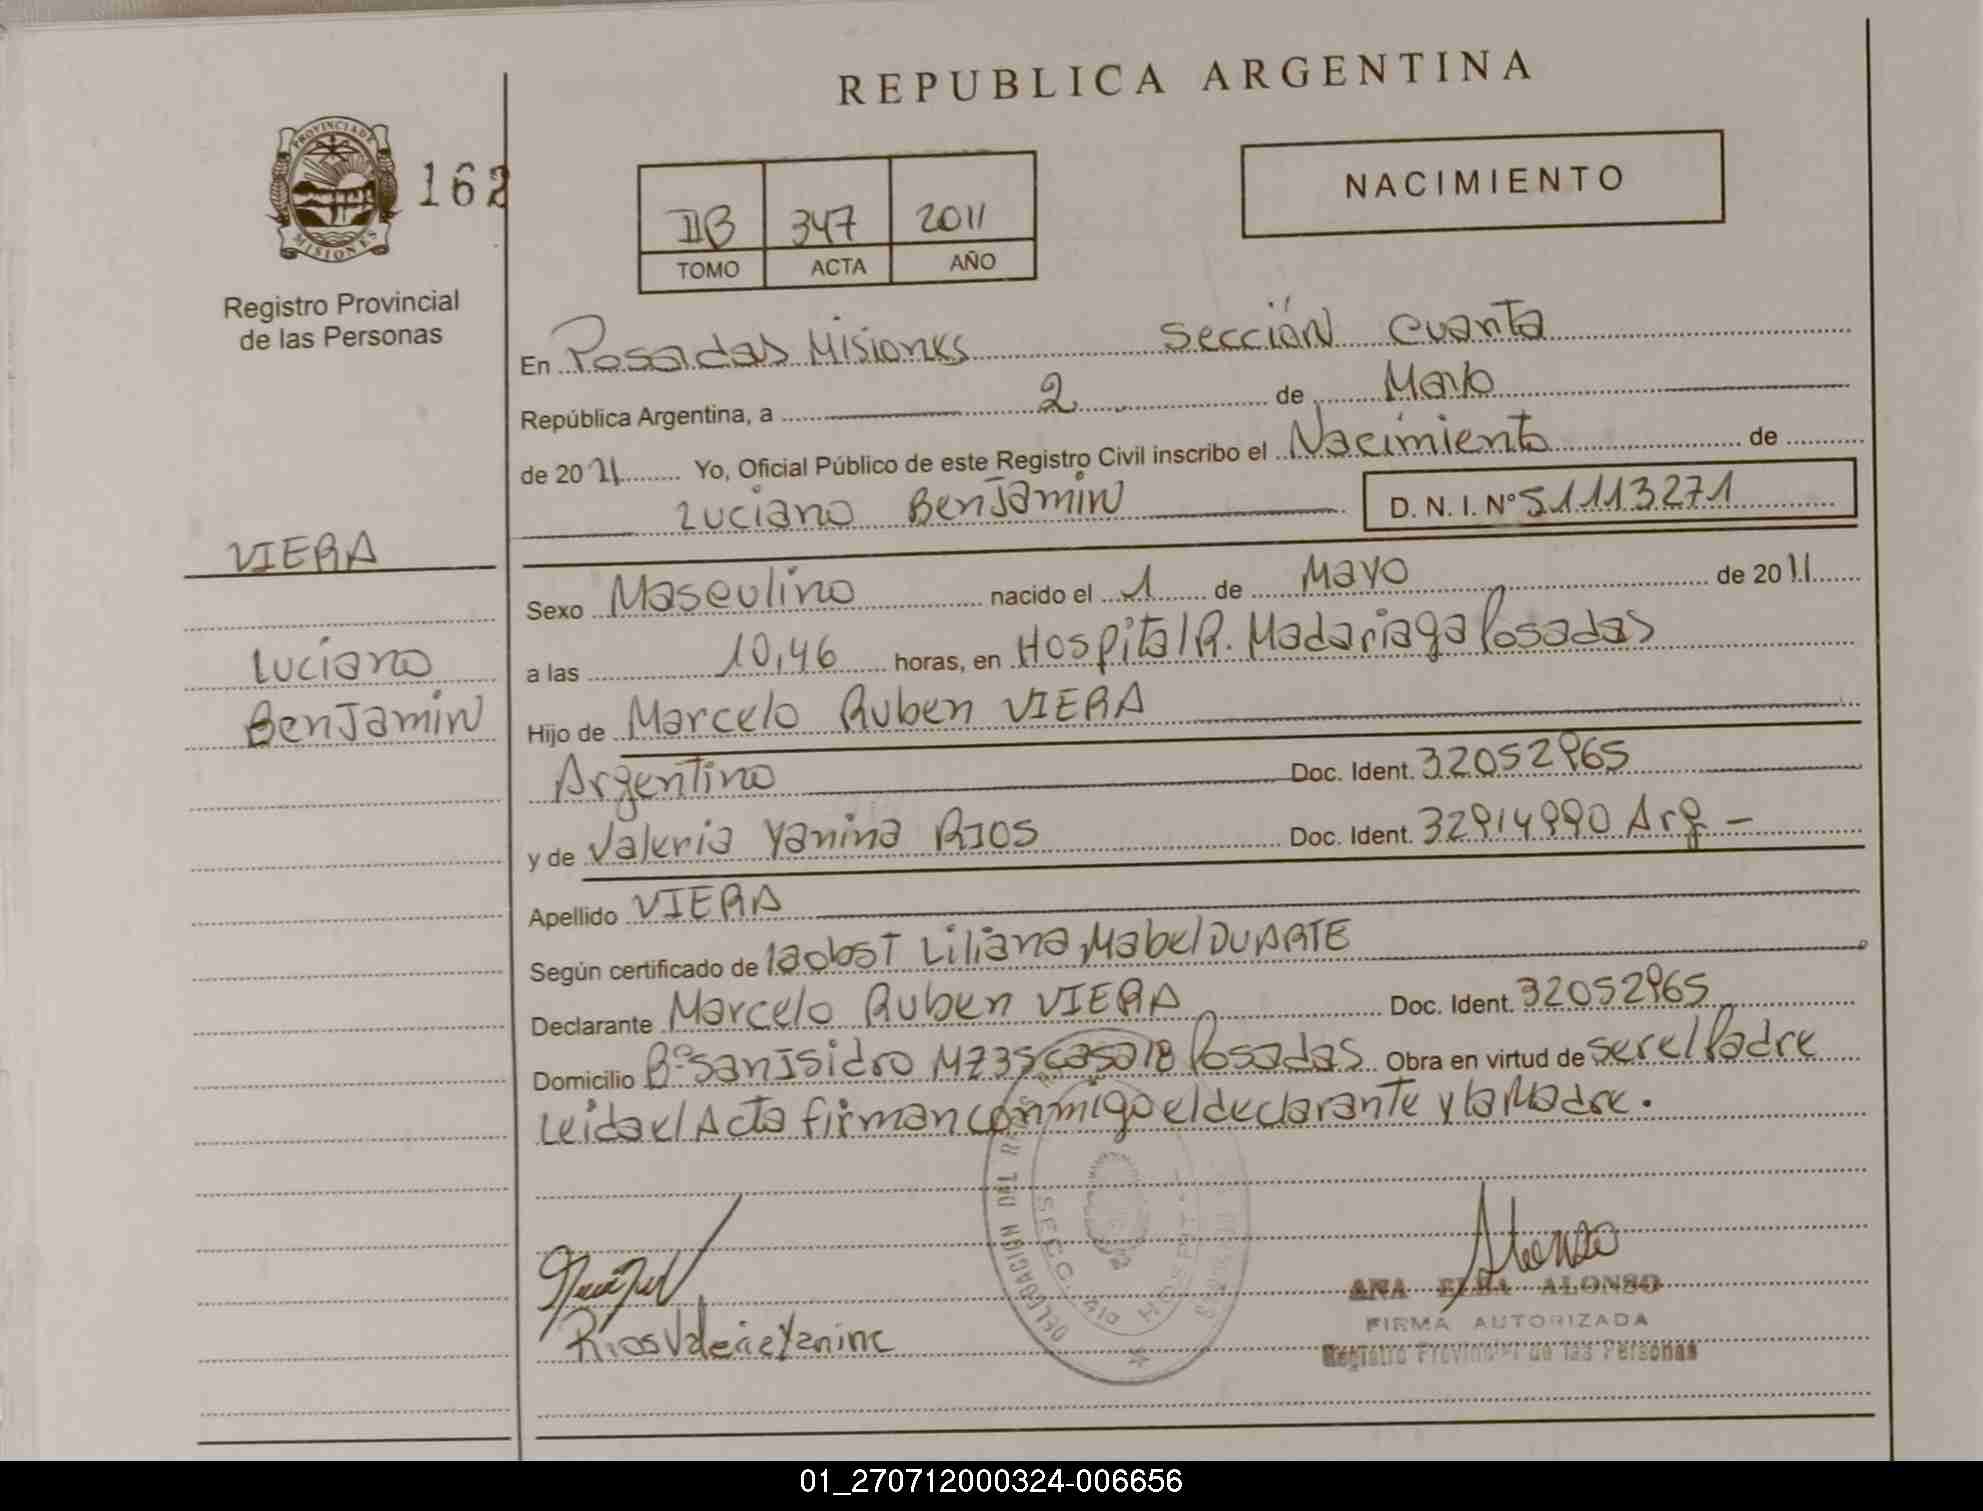 REPUBLICA ARGENTINA
PROVINCIA DE
MISIONES
162
Registro Provincial
de las Personas
NACIMIENTO
IIB 347 2011
TOMO ACTA AÑO
En Posadas Misiones Sección Cuarta
República Argentina, a 2 de Mayo
de 2011 Yo, Oficial Público de este Registro Civil inscribo el Nacimiento de
Luciano Benjamin D. N. I. Nº 51113271
VIERA
Luciano
Benjamin
Sexo Masculino nacido el 1 de Mayo de 2011
a las 10,46 horas, en Hospital R. Madariaga Posadas
Hijo de Marcelo Ruben VIERA
Argentino Doc. Ident. 32052965
y de Valeria Yanina RIOS Doc. Ident. 32914990 Arg -
Apellido VIERA
Según certificado de Liliana Mabel DUARTE
Declarante Marcelo Ruben VIERA Doc. Ident. 32052965
Domicilio Bº San Isidro MZ 35 casa 18 Posadas Obra en virtud de ser el Padre
Leida el Acta firman conmigo el declarante y la Madre.
Rios Valeria Yanina
ANA ELBA ALONSO
FIRMA AUTORIZADA
Registro Provincial de las Personas
01_270712000324-006656